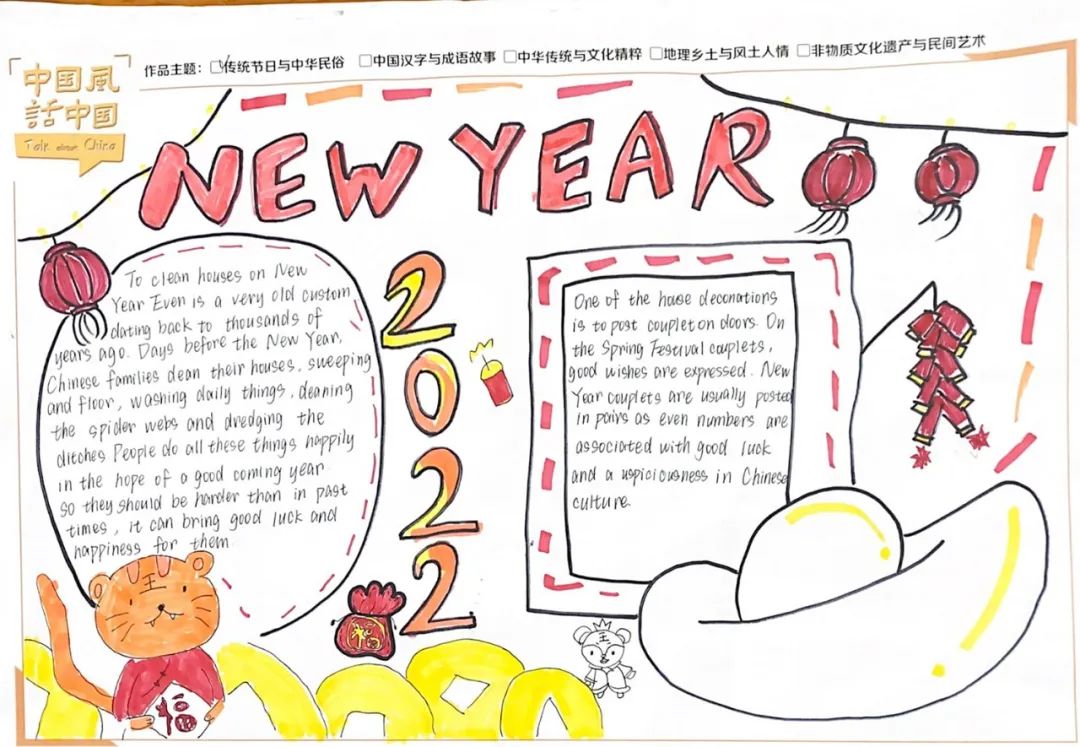 中国风
話中国
Talk about China
作品主题：□传统节日与中华民俗 □中国汉字与成语故事 □中华传统与文化精粹 □地理乡土与风土人情 □非物质文化遗产与民间艺术
NEW YEAR
To clean houses on New
Year Even is a very old custom
dating back to thousands of
years ago. Days before the New Year,
Chinese families clean their houses, sweeping
and floor, washing daily things, cleaning
the spider webs and dredging the
ditches. People do all these things happily
in the hope of a good coming year.
so they should be harder than in past
times, it can bring good luck and
happiness for them.
2022
One of the house deconations
is to post couplet on doors. On
the Spring Festival couplets,
good wishes are expressed. New
Year couplets are usually posted
in pairs as even numbers are
associated with good luck
and a uspiciousness in Chinese
culture.
王
福
福
王